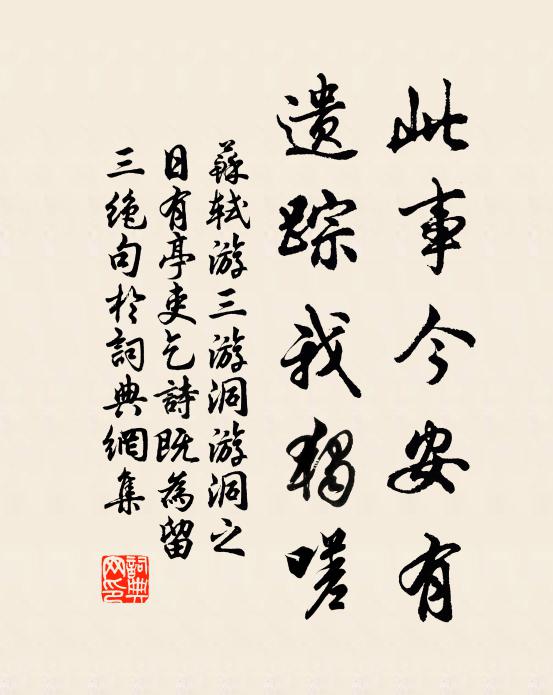 此事今安有
遗踪我独嗟
蘇軾游三游洞游洞之
日有亭吏乞詩既為留
三绝句於詞典網集
詞典网印